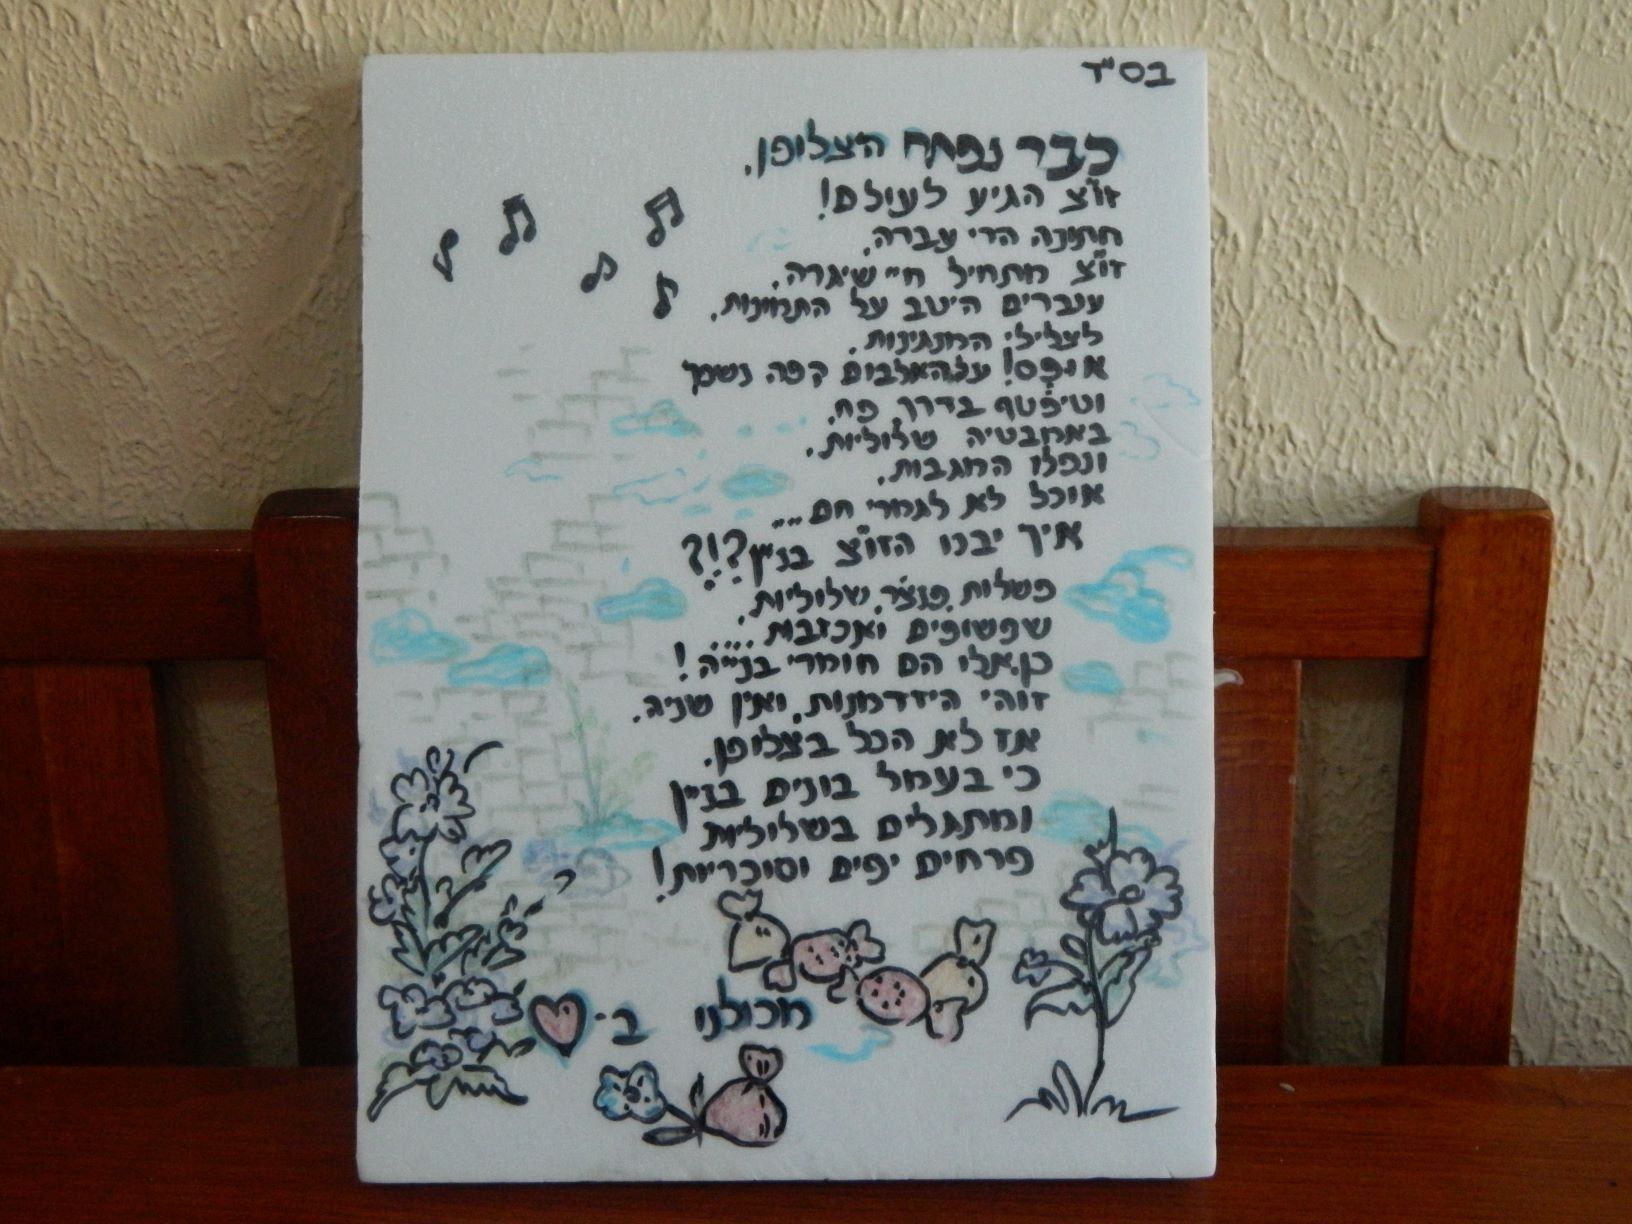 בס"ד
כבר נפתח הצלופן.
זו"צ הגיע לעולם!
חתונה הרי עברה.
זו"צ מתחיל חיי שיגרה.
עוברים היטב על התמונות.
לצלילי המנגינות.
אופס! על האלבום קפה נשפך
וטיפטף בדרך פח.
באמבטיה שלוליות.
ונפלו המגבות.
אוכל לא לגמרי חם....
איך יבנו הזו"צ בנין?!?
פשלות, פנצ'ר, שלוליות.
שפשופים ואכזבות....
כן, אלו הם חומרי בנייה!
זוהי הזדמנות, ואין שניה.
אז לא הכל בצלופן.
כי בעמל בונים בנין
ומתגלים בשלוליות
פרחים יפים וסוכריות!
מכולנו ב-